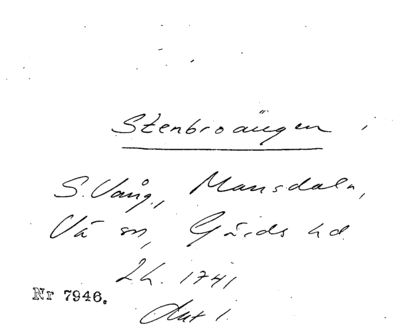 Stenbroängen i
S. Vång, Mansdala,
Vä sn, Gärds hd.
Lh. 1741
Akt 1.
Nr 7946.